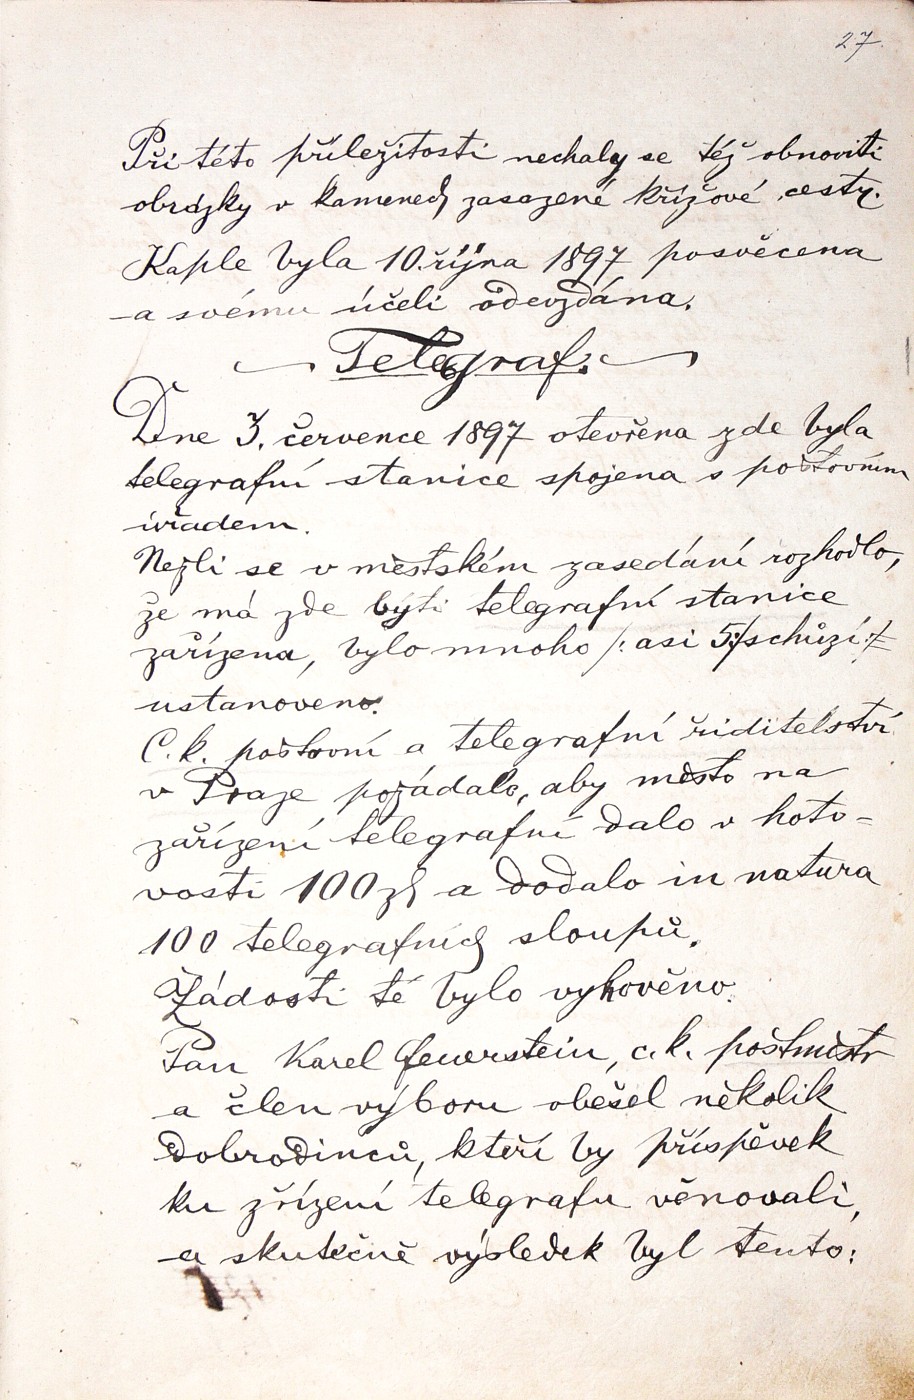 27.
Při této příležitosti nechaly se též obnoviti
obrázky v kamenech zasazené křížové cesty.
Kaple byla 10. října 1897 posvěcena
a svému účeli odevzdána.
Telegraf.
Dne 3. července 1897 otevřena zde byla
telegrafní stanice spojena s poštovním
úřadem.
Nežli se v městském zasedání rozhodlo,
že má zde býti telegrafní stanice
zařízena, bylo mnoho /: asi 5 :/ schůzí :/
ustanoveno.
C. k. poštovní a telegrafní řiditelství
v Praze požádalo, aby město na
zařízení telegrafní dalo v hoto=
vosti 100 zl a dodalo in natura
100 telegrafních sloupů.
Žádosti té bylo vyhověno.
Pan Karel Feuerstein, c. k. poštmistr
a člen výboru obešel několik
dobrodinců, kteří by příspěvek
ku zřízení telegrafu věnovali,
a skutečně výsledek byl tento: